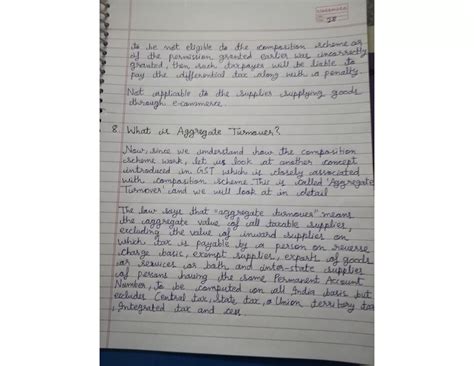 28
to be not eligible to the composition scheme or
if the permission granted earlier was incorrectly
granted, then such taxpayer will be liable to
pay the differential tax along with a penalty.
Not applicable to the supplier supplying goods
through e-commerce.
8. What is Aggregate Turnover?
Now, since we understand how the composition
scheme work, let us look at another concept
introduced in GST which is closely associated
with composition scheme. This is called 'Aggregate
Turnover' and we will look at in detail
The law says that "aggregate turnover" means
the aggregate value of all taxable supplies,
excluding the value of inward supplies on
which tax is payable by a person on reverse
charge basis, exempt supplies, exports of goods
or services or both and inter-state supplies
of persons having the same Permanent Account
Number, to be computed on all India basis but
excludes Central tax, State tax, a Union territory tax
, Integrated tax and cess